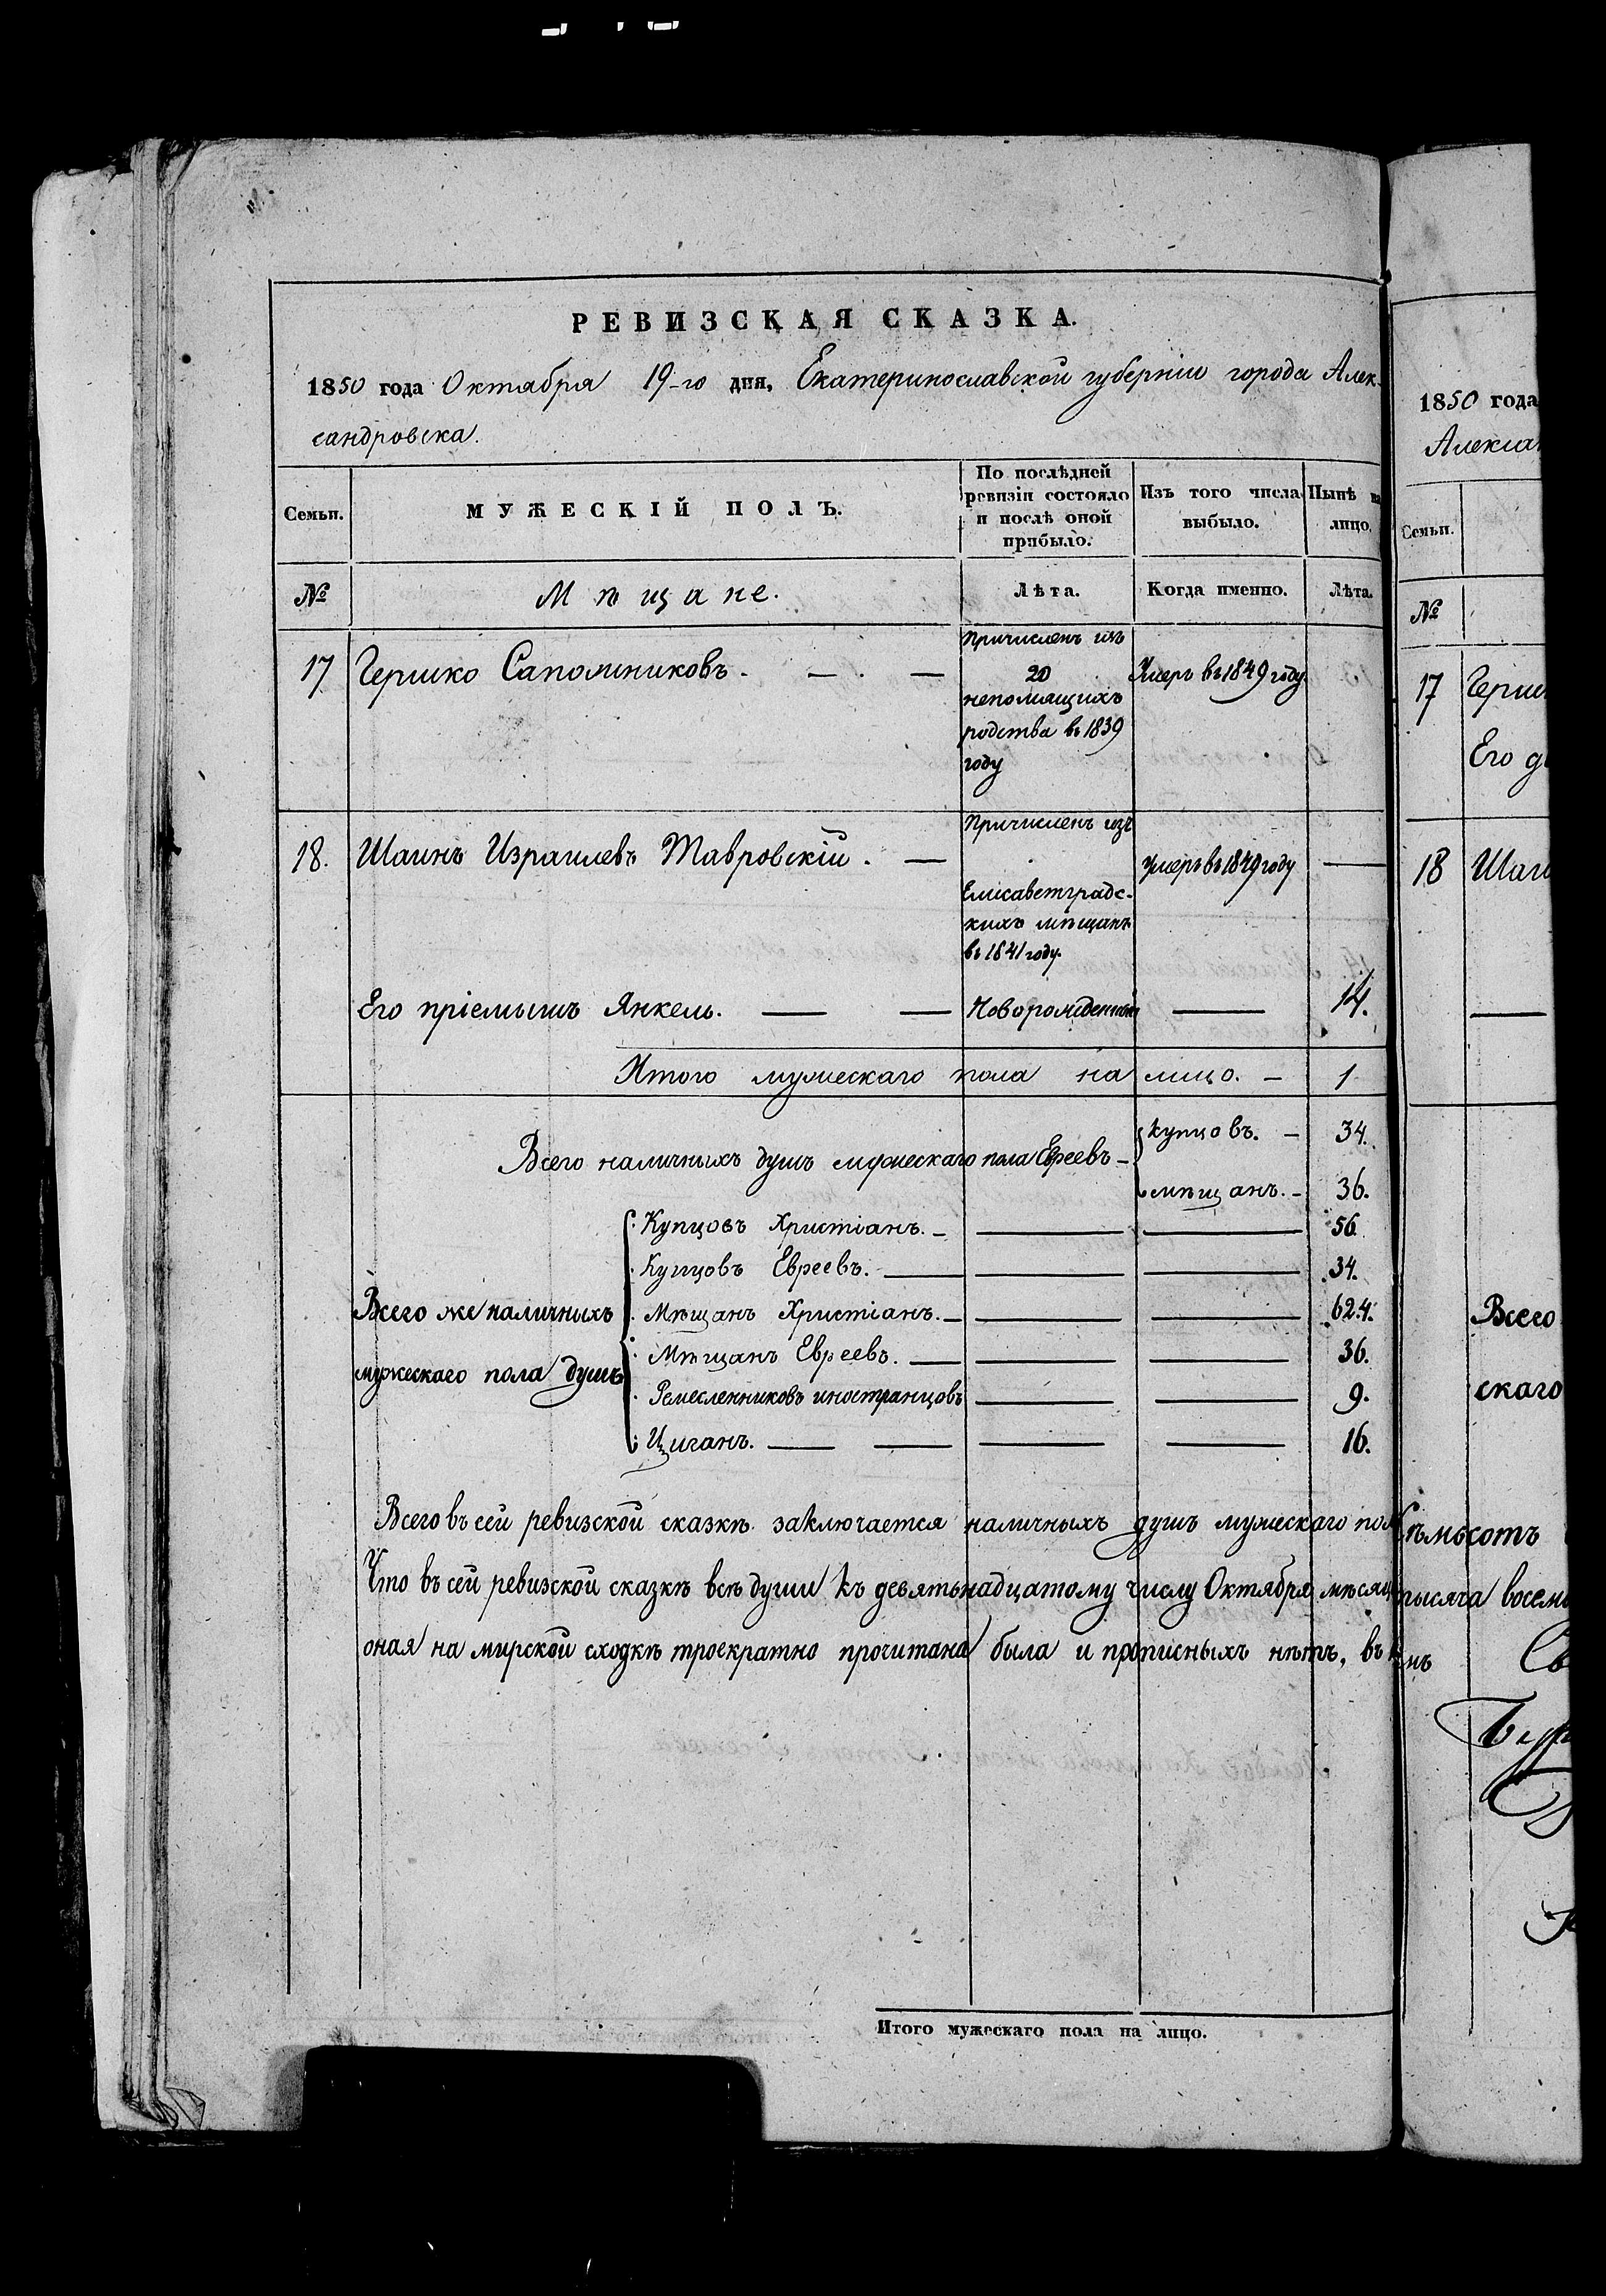 РЕВИЗСКАЯ СКАЗКА.
1850 года Октября 19-го дня, Екатеринославской губерніи города Алек-
сандровска.
Семьи.
МУЖЕСКІЙ ПОЛЪ.
По послѣдней
ревизіи состояло
и послѣ оной
прибыло.
Изъ того числа
выбыло.
Нынѣ на
лицо.
№
Мѣщане.
Лѣта.
Когда именно.
Лѣта.
17 Гершко Сапожниковъ. — . —
Причисленъ изъ
20
непомнящихъ
родства въ 1839
году
Умеръ въ 1849 году
18. Шаинъ Израилевъ Тавровскій. —
Причисленъ изъ
Елисаветградс-
кихъ мѣщанъ
въ 1841 году.
умеръ въ 1849 году —
Его пріемышъ Янкель. — — Новорожденный — 14.
Итого мужескаго пола на лицо. — 1
Всего наличныхъ душъ мужескаго пола Евреевъ —
купцовъ. — 34.
мѣщанъ. — 36.
Всего же наличныхъ
мужескаго пола душъ
Купцовъ Христіанъ. — — — 56.
Купцовъ Евреевъ. — — — 34.
Мѣщанъ Христіанъ. — — — 624.
Мѣщанъ Евреевъ. — — — 36.
Ремесленниковъ иностранцовъ — — 9.
Циганъ. — — — — 16.
Всего въ сей ревизской сказкѣ заключается наличныхъ душъ мужескаго пол
Что въ сей ревизской сказкѣ всѣ души къ девятьнадцатому числу Октября мѣсяц
оная на мирской сходкѣ троекратно прочитана была и прописныхъ нѣтъ, въ
Итого мужескаго пола на лицо.
1850 года
Алексан
Семьи.
№
17 Герш
Его д
18 Шаи
—
Всего
скаго
мьсотъ
тысяча восемь
Св